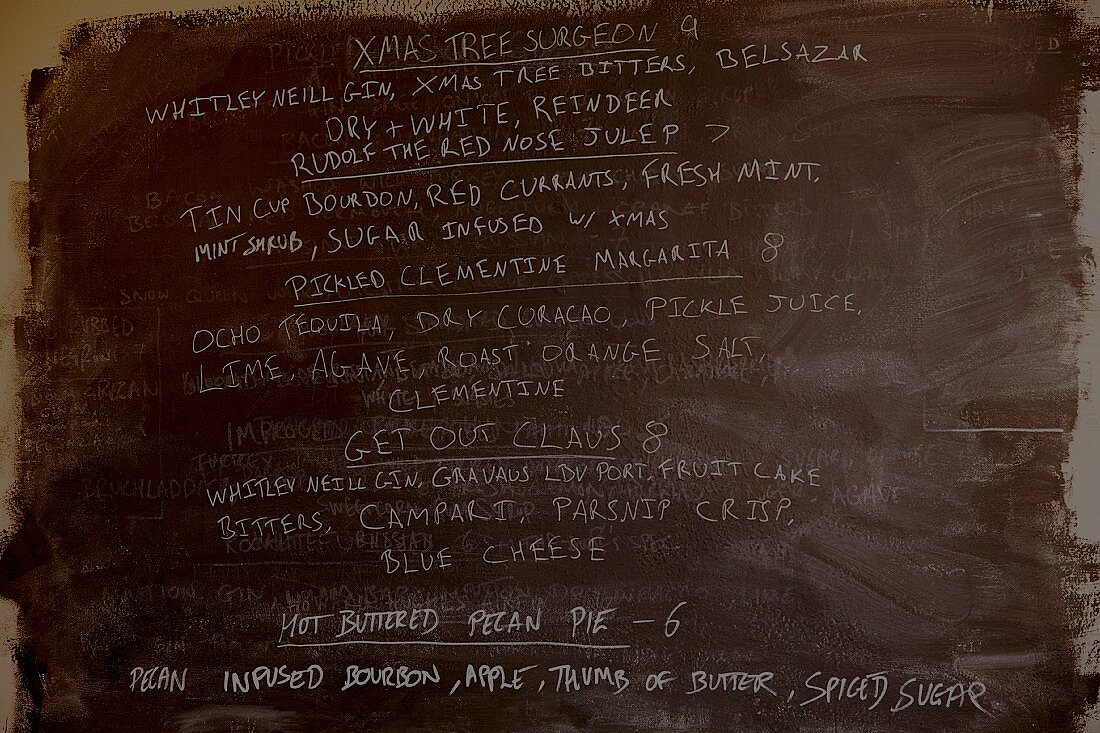 XMAS TREE SURGEON 9
WHITLEY NEILL GIN, XMAS TREE BITTERS, BELSAZAR
DRY + WHITE, REINDEER
RUDOLF THE RED NOSE JULEP 7
TIN CUP BOURDON, RED CURRANTS, FRESH MINT,
MINT SHRUB, SUGAR INFUSED W/ XMAS
PICKLED CLEMENTINE MARGARITA 8
OCHO TEQUILA, DRY CURACAO, PICKLE JUICE,
LIME, AGANE, ROAST ORANGE SALT,
CLEMENTINE
GET OUT CLAUS 8
WHITLEY NEILL GIN, GRAVAUS LBV PORT, FRUIT CAKE
BITTERS, CAMPARI, PARSNIP CRISP,
BLUE CHEESE
HOT BUTTERED PECAN PIE - 6
PECAN INFUSED BOURBON, APPLE, THUMB OF BUTTER, SPICED SUGAR